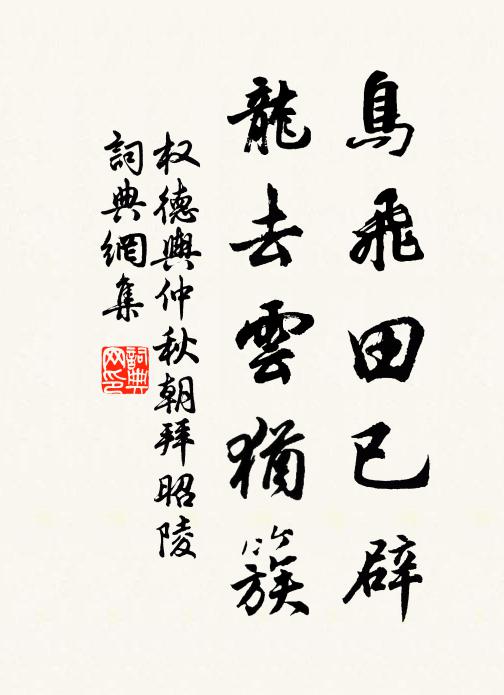 鳥飛田已辟
龍去雲猶簇
权德輿仲秋朝拜昭陵
詞典網集
詞典网印